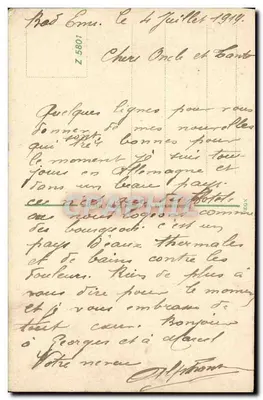 Bad Ems. le 4 Juillet 1919.
Z 5801
Chers Oncle et Tante
Quelques lignes pour vous
donner de mes nouvelles
qui sont très bonnes pour
le moment Je suis tou-
jours en Allemagne et
dans un beau pays
ce n'est que des Hotels
ou nous logeons comme
des bourgeois c'est un
pays d'eaux thermales
et de bains contre les
douleurs. Rien de plus à
vous dire pour le moment
et je vous embrasse de
tout cœur. Bonjour
à Georges et à Marcel
Votre neveu